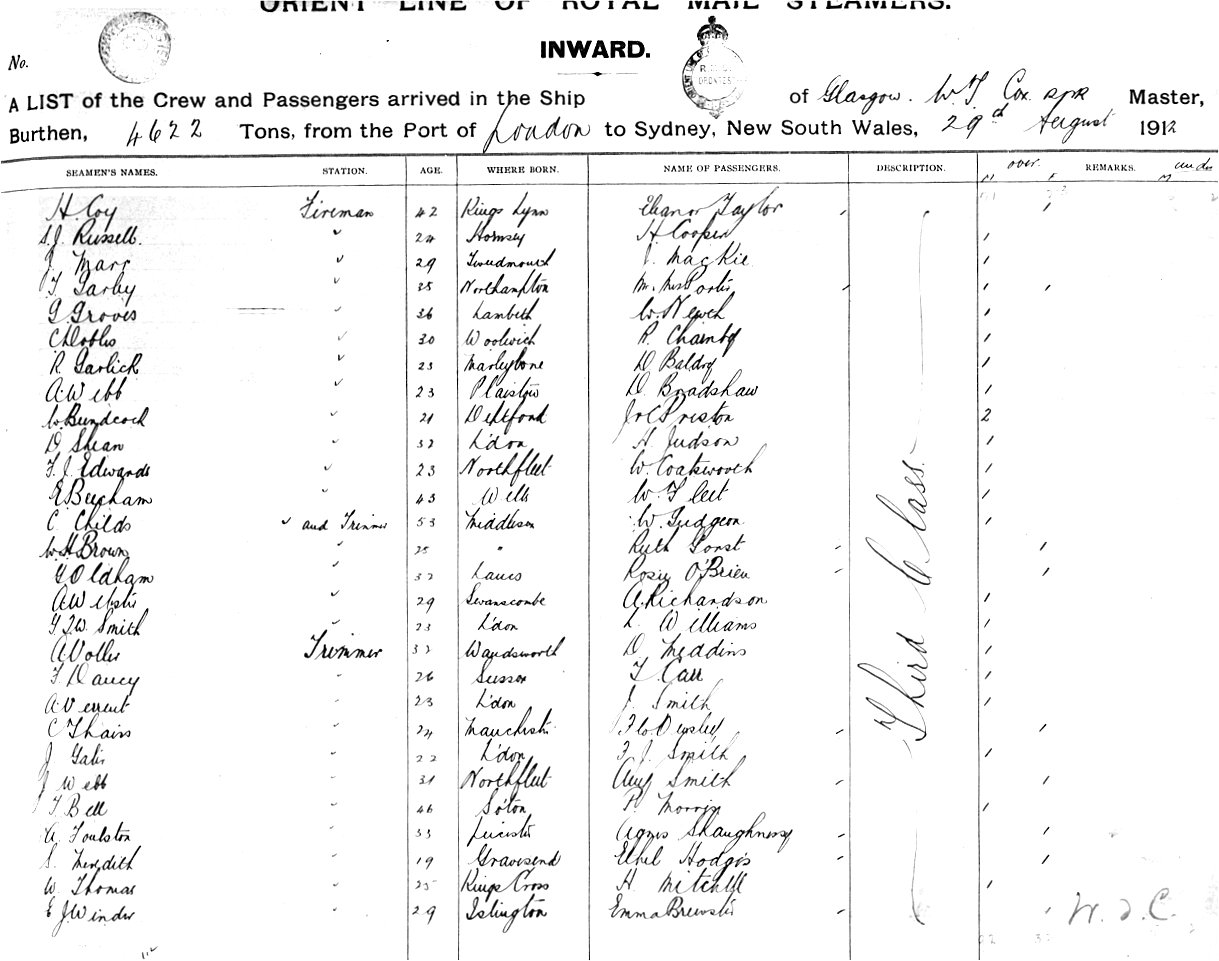 ORIENT LINE OF ROYAL MAIL STEAMERS.
INWARD.
No.
A LIST of the Crew and Passengers arrived in the Ship R.M.S. ORONTES of Glasgow. W J Cox RNR Master,
Burthen, 4622 Tons, from the Port of London to Sydney, New South Wales, 29th August 1912
SEAMEN'S NAMES. STATION. AGE. WHERE BORN. NAME OF PASSENGERS. DESCRIPTION. over. REMARKS. under
M F M
H. Coy Fireman 42 Kings Lynn Eleanor Taylor - 1
S.J. Russell. " 24 Hornsey H Cooper 1
J. Marr " 29 Tweedmouth J. Mackie 1
T Garby " 35 Northampton Mr. Mrs Portis 1 1
G Groves " 36 Lambeth W. Newth 1
C Dobbs " 30 Woolwich R. 1
R Garlick " 23 Marlebone D. 1
A Webb " 23 Plaistow D. Bradshaw 1
W Bundcock " 21 Deptford J & C Preston 2
D Shean " 32 L'don H Judson 1
F. J. Edwards " 23 Northfleet W. Coatsworth 1
E Beecham " 43 W Fleet 1
C. Childs " and Trimmer 53 Middlesex W. Gudgeon 1
W H Brown " 25 " Ruth Gorst - 1
G Oldham " 32 Lancs Rosie O'Brien - 1
A Webster " 29 Swanscombe A. Richardson 1
G.W. Smith " 23 L'don L. Williams 1
A Voller Trimmer 32 Wandsworth D Meddins 1
F. Dancy " 26 Sussex T Carr 1
A Verrent " 23 L'don J. Smith 1
C Thain " 24 Manchester Flo - 1
J Gater " 22 L'don F. J. Smith 1
J Webb " 31 Northfleet Amy Smith - 1
T Bell " 46 So'ton P. Morris 1
A Foulston " 33 Leicester Agnes Shaughnessy - 1
S. Meredith " 19 Gravesend Ethel Hodges - 1
W Thomas " 25 Kings Cross H Mitchell 1
E J Winder " 29 Islington Emma Brewster - 1
Third Class
W. J. C.